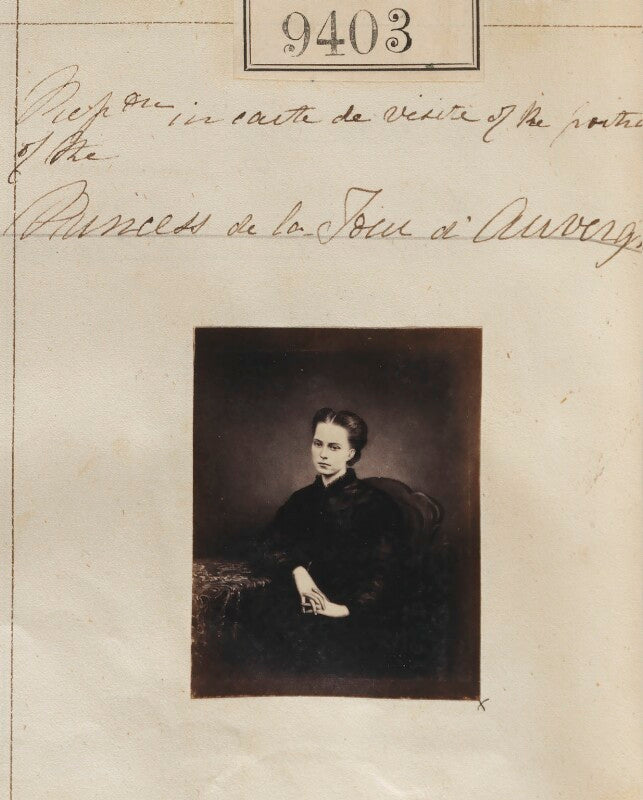 9403
Repron in carte de visite of the portr
of the
Princess de la Tour d'Auverg
x